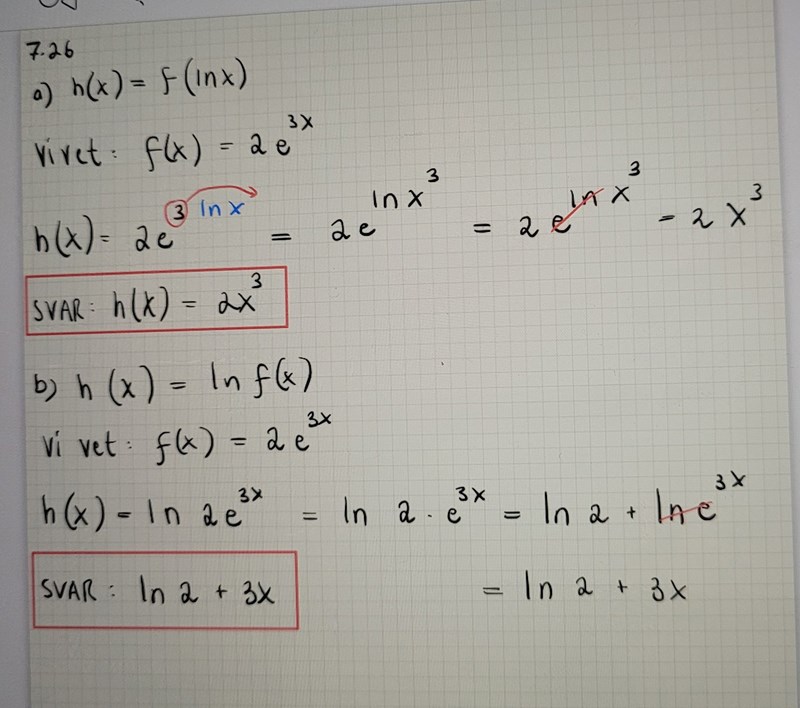 7.26
a) h(x) = f(ln x)
Vi vet: f(x) = 2e^{3x}
h(x) = 2e^{3 ln x} = 2e^{ln x^3} = 2e^{ln x^3} - 2x^3
SVAR: h(x) = 2x^3
b) h(x) = ln f(x)
Vi vet: f(x) = 2e^{3x}
h(x) = ln 2e^{3x} = ln 2 · e^{3x} = ln 2 + ln e^{3x}
SVAR: ln 2 + 3x = ln 2 + 3x